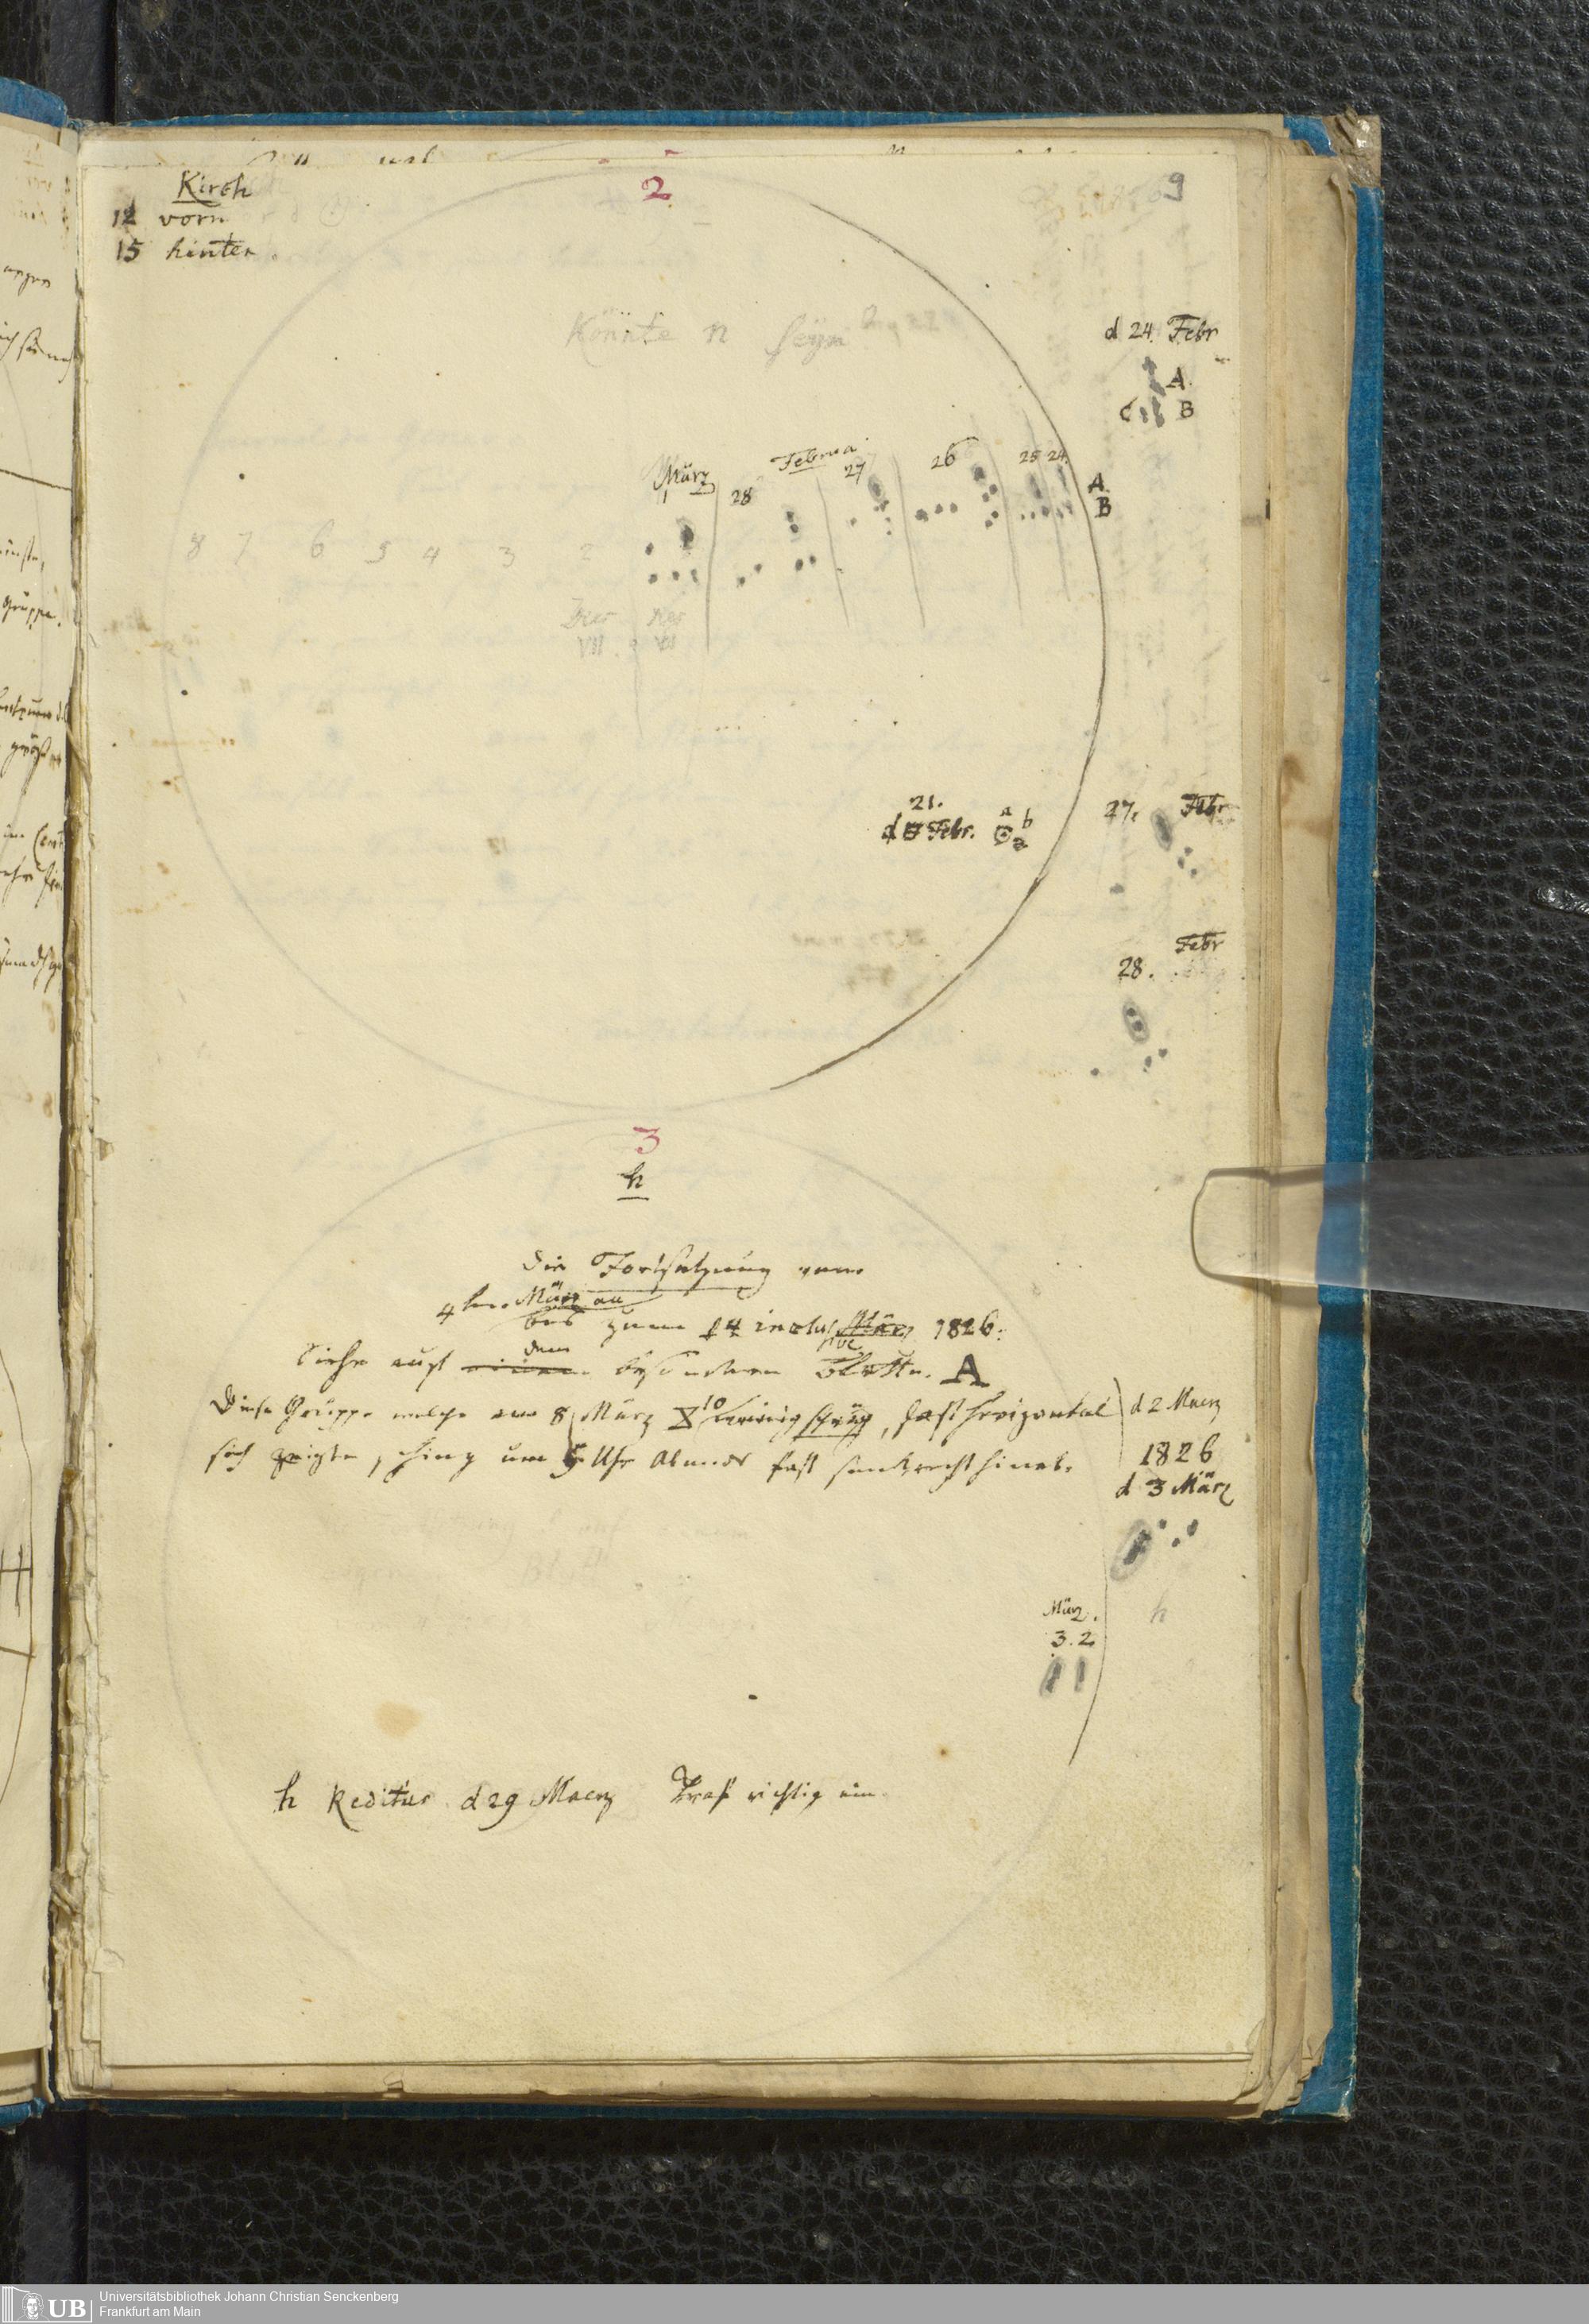 Kirch
12 vorn
15 hinten
2
9
Könnte n seyn
d 24. Febr
A.
C B
März
1
28
Februa
27
26
25 24.
A.
B
8 7 6 5 4 3 2
VII VI
21.
d Febr.
a b
a
27. Febr
28. Febr
3
h
Die Fortsetzung vom
4ten März an
bis zum 14 inclusive März 1826.
Siehe auf dem besondern Blatte. A
Diese Gruppe welche am 8 März schräg, fast horizontal
sich zeigte, hing um 5 Uhr Abends fast senkrecht hinab.
d 2 Maerz
1826
d 3 März
h
März.
3. 2
h Reditus d 29 Maerz Traf richtig ein.
UB
Universitätsbibliothek Johann Christian Senckenberg
Frankfurt am Main